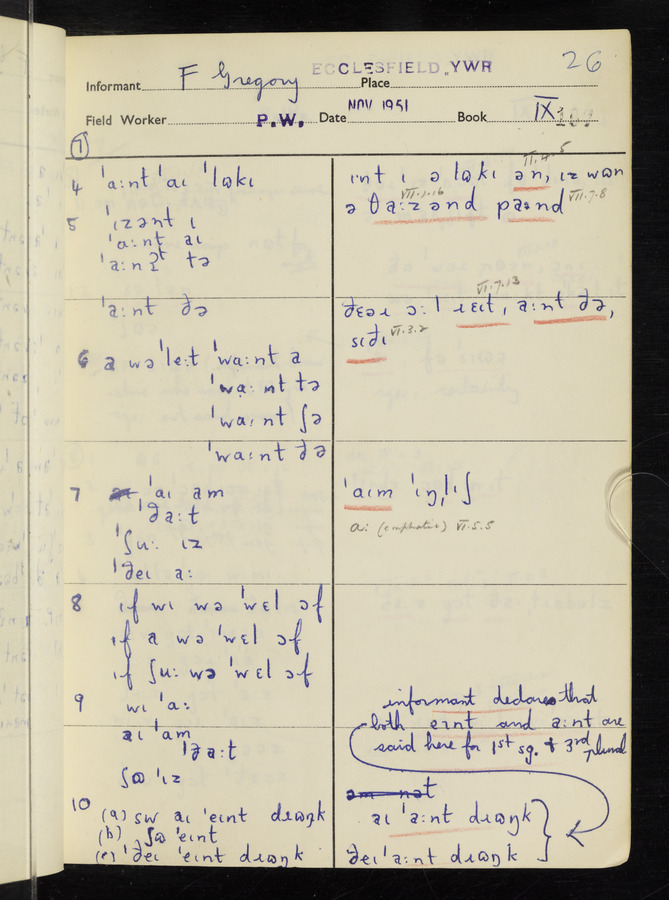 26
ECCLESFIELD, YWR
Informant F Gregory Place
Field Worker P.W. Date NOV 1951 Book IX
7
4 ˈaːnt ˈaɪ ˈlʊkɪ
ɪnt ɪ ə lʊkɪ ən, ɪz wʊn
ə θaːzənd paːnd VII.7.8
VII.1.16
5 ˈɪzənt ɪ
ˈaːnt aɪ
ˈaːnʔt tə
ˈaːnt ðə
ðɛəɹ ɔːl ɹɛɪt, aːnt ðə,
VI.7.13
sɪðɪ VI.3.2
6 a wəˈleːt ˈwaːnt a
ˈwaːnt tə
ˈwaːnt ʃə
ˈwaːnt ðə
7 ˈaɪ am
ˈðaːt
ˈʃuː ɪz
ˈðeɪ aː
ˈaɪm ˈɪŋlɪʃ
aː (emphatic) VI.5.5
8 ɪf wɪ wə ˈwɛl ɔf
ɪf a wə ˈwɛl ɔf
ɪf ʃuː wə ˈwɛl ɔf
9 wɪ ˈaː
aɪ ˈam
ˈðaːt
ʃʊ ˈɪz
informant declares that
both eɪnt and aːnt are
said here for 1st sg. & 3rd plural
10 (a) sw aɪ ˈeɪnt dɹʊŋk
(b) ʃʊ ˈeɪnt
(c) ˈðeɪ ˈeɪnt dɹʊŋk
aɪ ˈaːnt dɹʊŋk
ðeɪ ˈaːnt dɹʊŋk